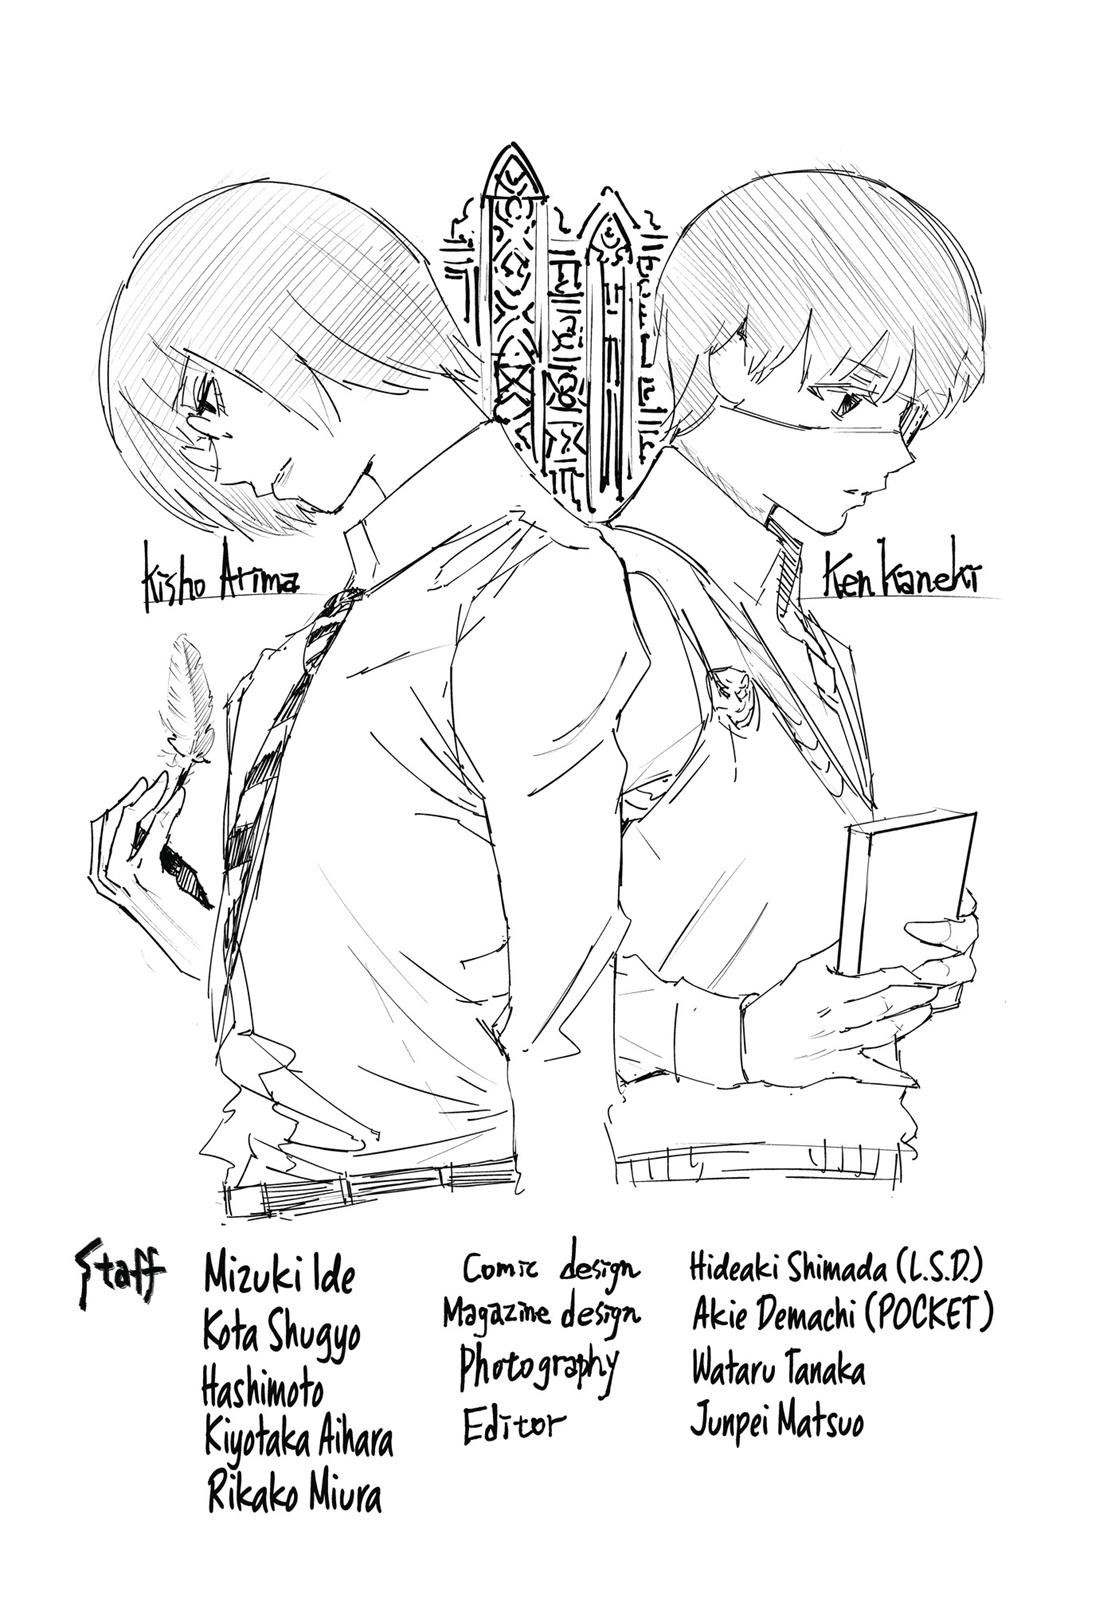 Kisho Arima
Ken Kaneki
Staff
Mizuki Ide
Kota Shugyo
Hashimoto
Kiyotaka Aihara
Rikako Miura
Comic design Hideaki Shimada (L.S.D.)
Magazine design Akie Demachi (POCKET)
Photography Wataru Tanaka
Editor Junpei Matsuo